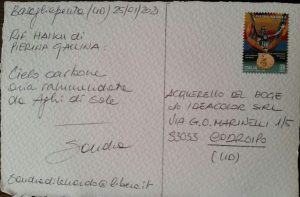 Basagliapenta (UD) 25/01/2021
Rif HAIKU di
PIERINA GALLINA:
Cielo carbone
aria rammendata
da Aghi di Sole
Sandra
sandradilenardo@libero.it
ACQUERELLO DEL DOGE
c/o IDEACOLOR SRL
VIA G.O. MARINELLI 1/5
33033 CODROIPO
(UD)